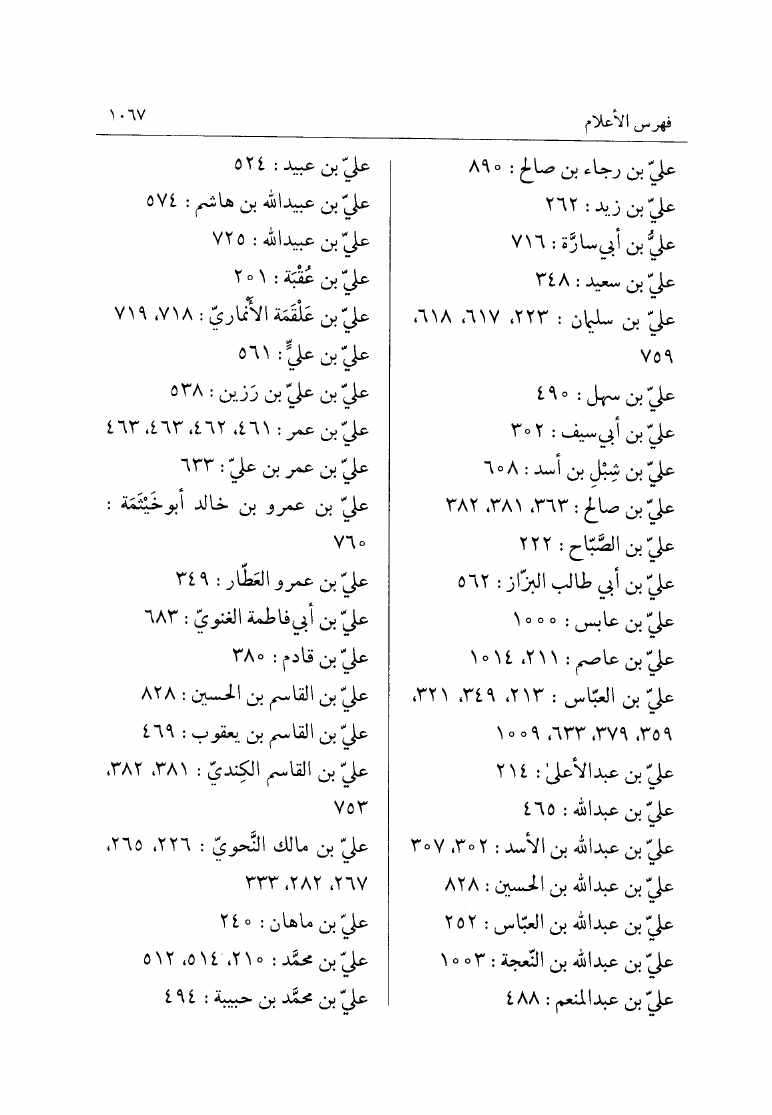 فهرس الأعلام
١٠٦٧
عليّ بن رجاء بن صالح : ٨٩٠
عليّ بن زيد : ٢٦٢
عليُّ بن أبي سارَّة : ٧١٦
عليّ بن سعيد : ٣٤٨
عليّ بن سليمان : ٢٢٣، ٦١٧، ٦١٨،
٧٥٩
عليّ بن سهل : ٤٩٠
عليّ بن أبي سيف : ٣٠٢
عليّ بن شِبْلِ بن أسد : ٦٠٨
عليّ بن صالح : ٣٦٣، ٣٨١، ٣٨٢
عليّ بن الصَّبّاح : ٢٢٢
عليّ بن أبي طالب البزّاز : ٥٦٢
عليّ بن عابس : ١٠٠٠
عليّ بن عاصم : ٢١١، ١٠١٤
عليّ بن العبّاس : ٢١٣، ٣٤٩، ٣٢١،
٣٥٩، ٣٧٩، ٦٣٣، ١٠٠٩
عليّ بن عبدالأعلىٰ : ٢١٤
عليّ بن عبدالله : ٤٦٥
عليّ بن عبدالله بن الأسد : ٣٠٢، ٣٠٧
عليّ بن عبدالله بن الحسين : ٨٢٨
عليّ بن عبدالله بن العبّاس : ٢٥٢
عليّ بن عبدالله بن النّعجة : ١٠٠٣
عليّ بن عبدالمنعم : ٤٨٨
عليّ بن عبيد : ٥٢٤
عليّ بن عبيدالله بن هاشم : ٥٧٤
عليّ بن عبيدالله : ٧٢٥
عليّ بن عُقْبَة : ٢٠١
عليّ بن عَلْقَمَة الأَنْماريّ : ٧١٨، ٧١٩
عليّ بن عليٍّ : ٥٦١
عليّ بن عليّ بن رَزين : ٥٣٨
عليّ بن عمر : ٤٦١، ٤٦٢، ٤٦٣، ٤٦٣
عليّ بن عمر بن عليّ : ٦٣٣
عليّ بن عمرو بن خالد أبوخَيْثَمَة :
٧٦٠
عليّ بن عمرو العَطّار : ٣٤٩
عليّ بن أبي فاطمة الغنويّ : ٦٨٣
عليّ بن قادم : ٣٨٠
عليّ بن القاسم بن الحسين : ٨٢٨
عليّ بن القاسم بن يعقوب : ٤٦٩
عليّ بن القاسم الكِنديّ : ٣٨١، ٣٨٢،
٧٥٣
عليّ بن مالك النَّحويّ : ٢٢٦، ٢٦٥،
٢٦٧، ٢٨٢، ٣٣٣
عليّ بن ماهان : ٢٤٠
عليّ بن محمَّد : ٢١٠، ٥١٤، ٥١٢
عليّ بن محمَّد بن حبيبة : ٤٩٤